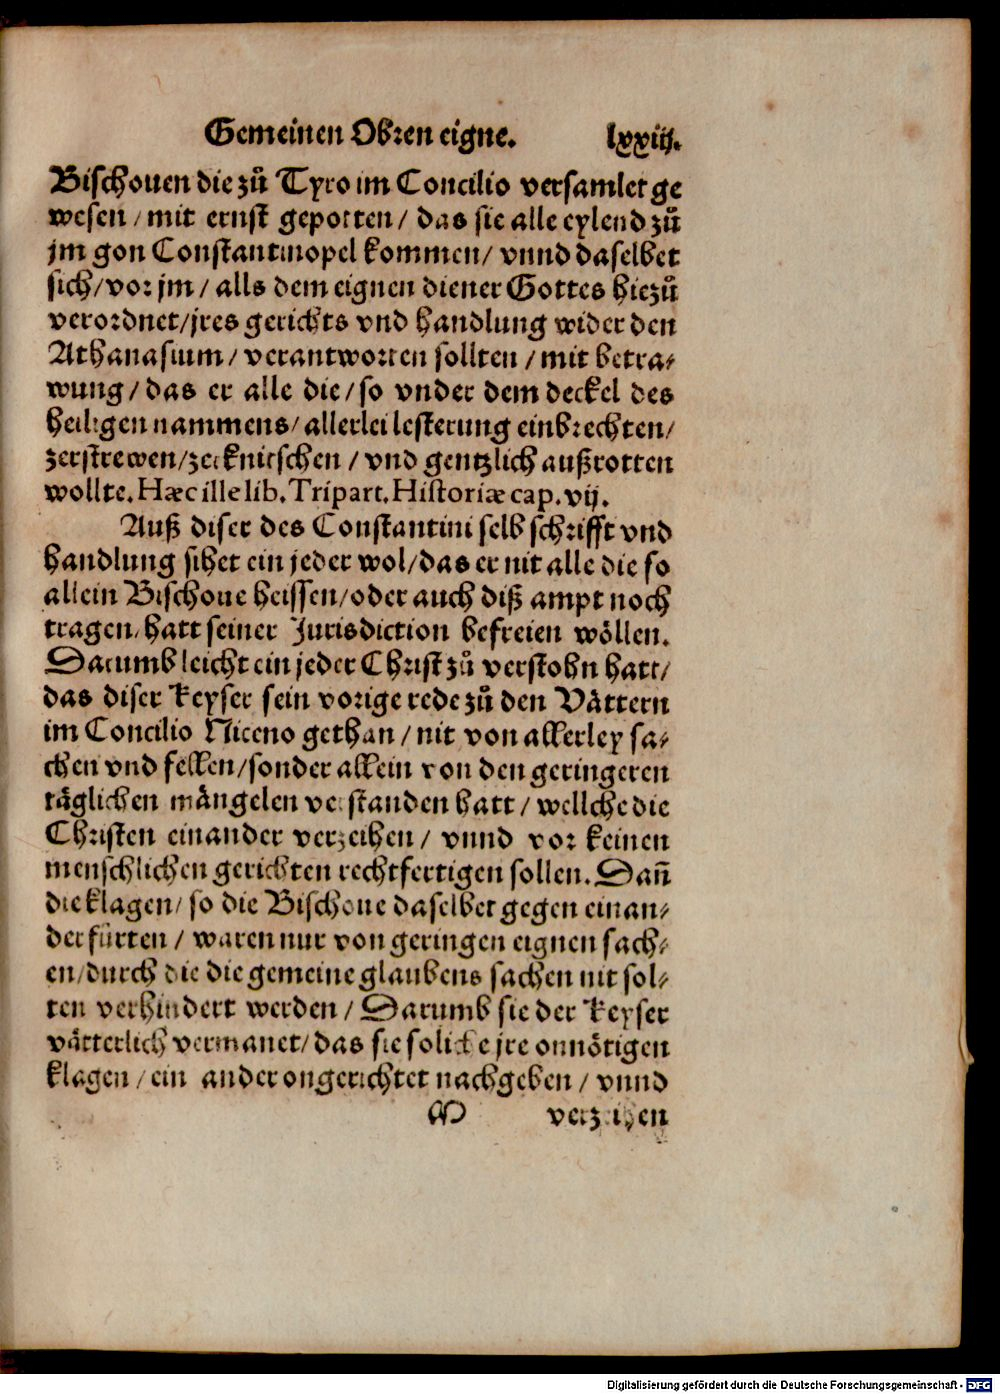 Gemeinen Obren eigne. lxxiij.
Bischouen die zů Tyro im Concilio versamlet ge
wesen / mit ernst gepotten / das sie alle eylend zů
jm gon Constantinopel kommen / vnnd daselbet
sich / vor jm / alls dem eignen diener Gottes hiezů
verordnet / jres gerichts vnd handlung wider den
Athanasium / verantworten sollten / mit betra⸗
wung / das er alle die / so vnder dem deckel des
heiligen nammens / allerlei lesterung einbrechten /
zerstrewen / zerknirschen / vnd gentzlich außrotten
wollte. Hæc ille lib. Tripart. Historiæ cap. vij.
Auß diser des Constantini selb schrifft vnd
handlung sihet ein jeder wol / das er nit alle die so
allein Bischoue heissen / oder auch diß ampt noch
tragen / hatt seiner Jurisdiction befreien wöllen.
Darumb leicht ein jeder Christ zů verstohn hatt /
das diser Keyser sein vorige rede zů den Vättern
im Concilio Niceno gethan / nit von allerley sa⸗
chen vnd fellen / sonder allein von den geringeren
täglichen mängelen verstanden hatt / wellche die
Christen einander verzeihen / vnnd vor keinen
menschlichen gerichten rechtfertigen sollen. Dañ
die klagen / so die Bischoue daselbet gegen einan⸗
der fürten / waren nur von geringen eignen sach⸗
en / durch die die gemeine glaubens sachen nit sol⸗
ten verhindert werden / Darumb sie der Keyser
vätterlich vermanet / das sie soliche jre onnötigen
klagen / ein ander ongerichtet nachgeben / vnnd
verzeihen
Digitalisierung gefördert durch die Deutsche Forschungsgemeinschaft - DFG